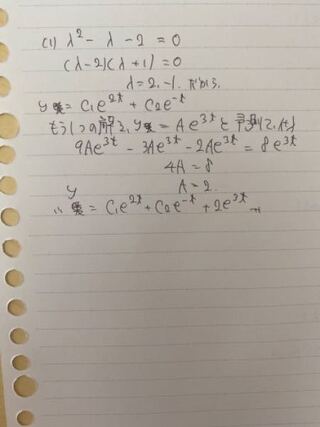 (1) λ² - λ - 2 = 0
(λ-2)(λ+1) = 0
λ = 2, -1. だから、
y = C₁e^{2t} + C₂e^{-t}
もう1つの解を、y = Ae^{3t} と予測して、
9Ae^{3t} - 3Ae^{3t} - 2Ae^{3t} = 8e^{3t}
4A = 8
A = 2.
∴ y = C₁e^{2t} + C₂e^{-t} + 2e^{3t}